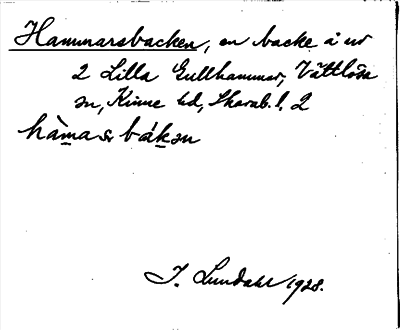 Hammarsbacken, en backe å nr
2 Lilla Gullhammar, Vättlösa
sn, Kinne hd, Skarab. l. 2
hàmaṣ bák̲ən
I. Lundahl 1928.